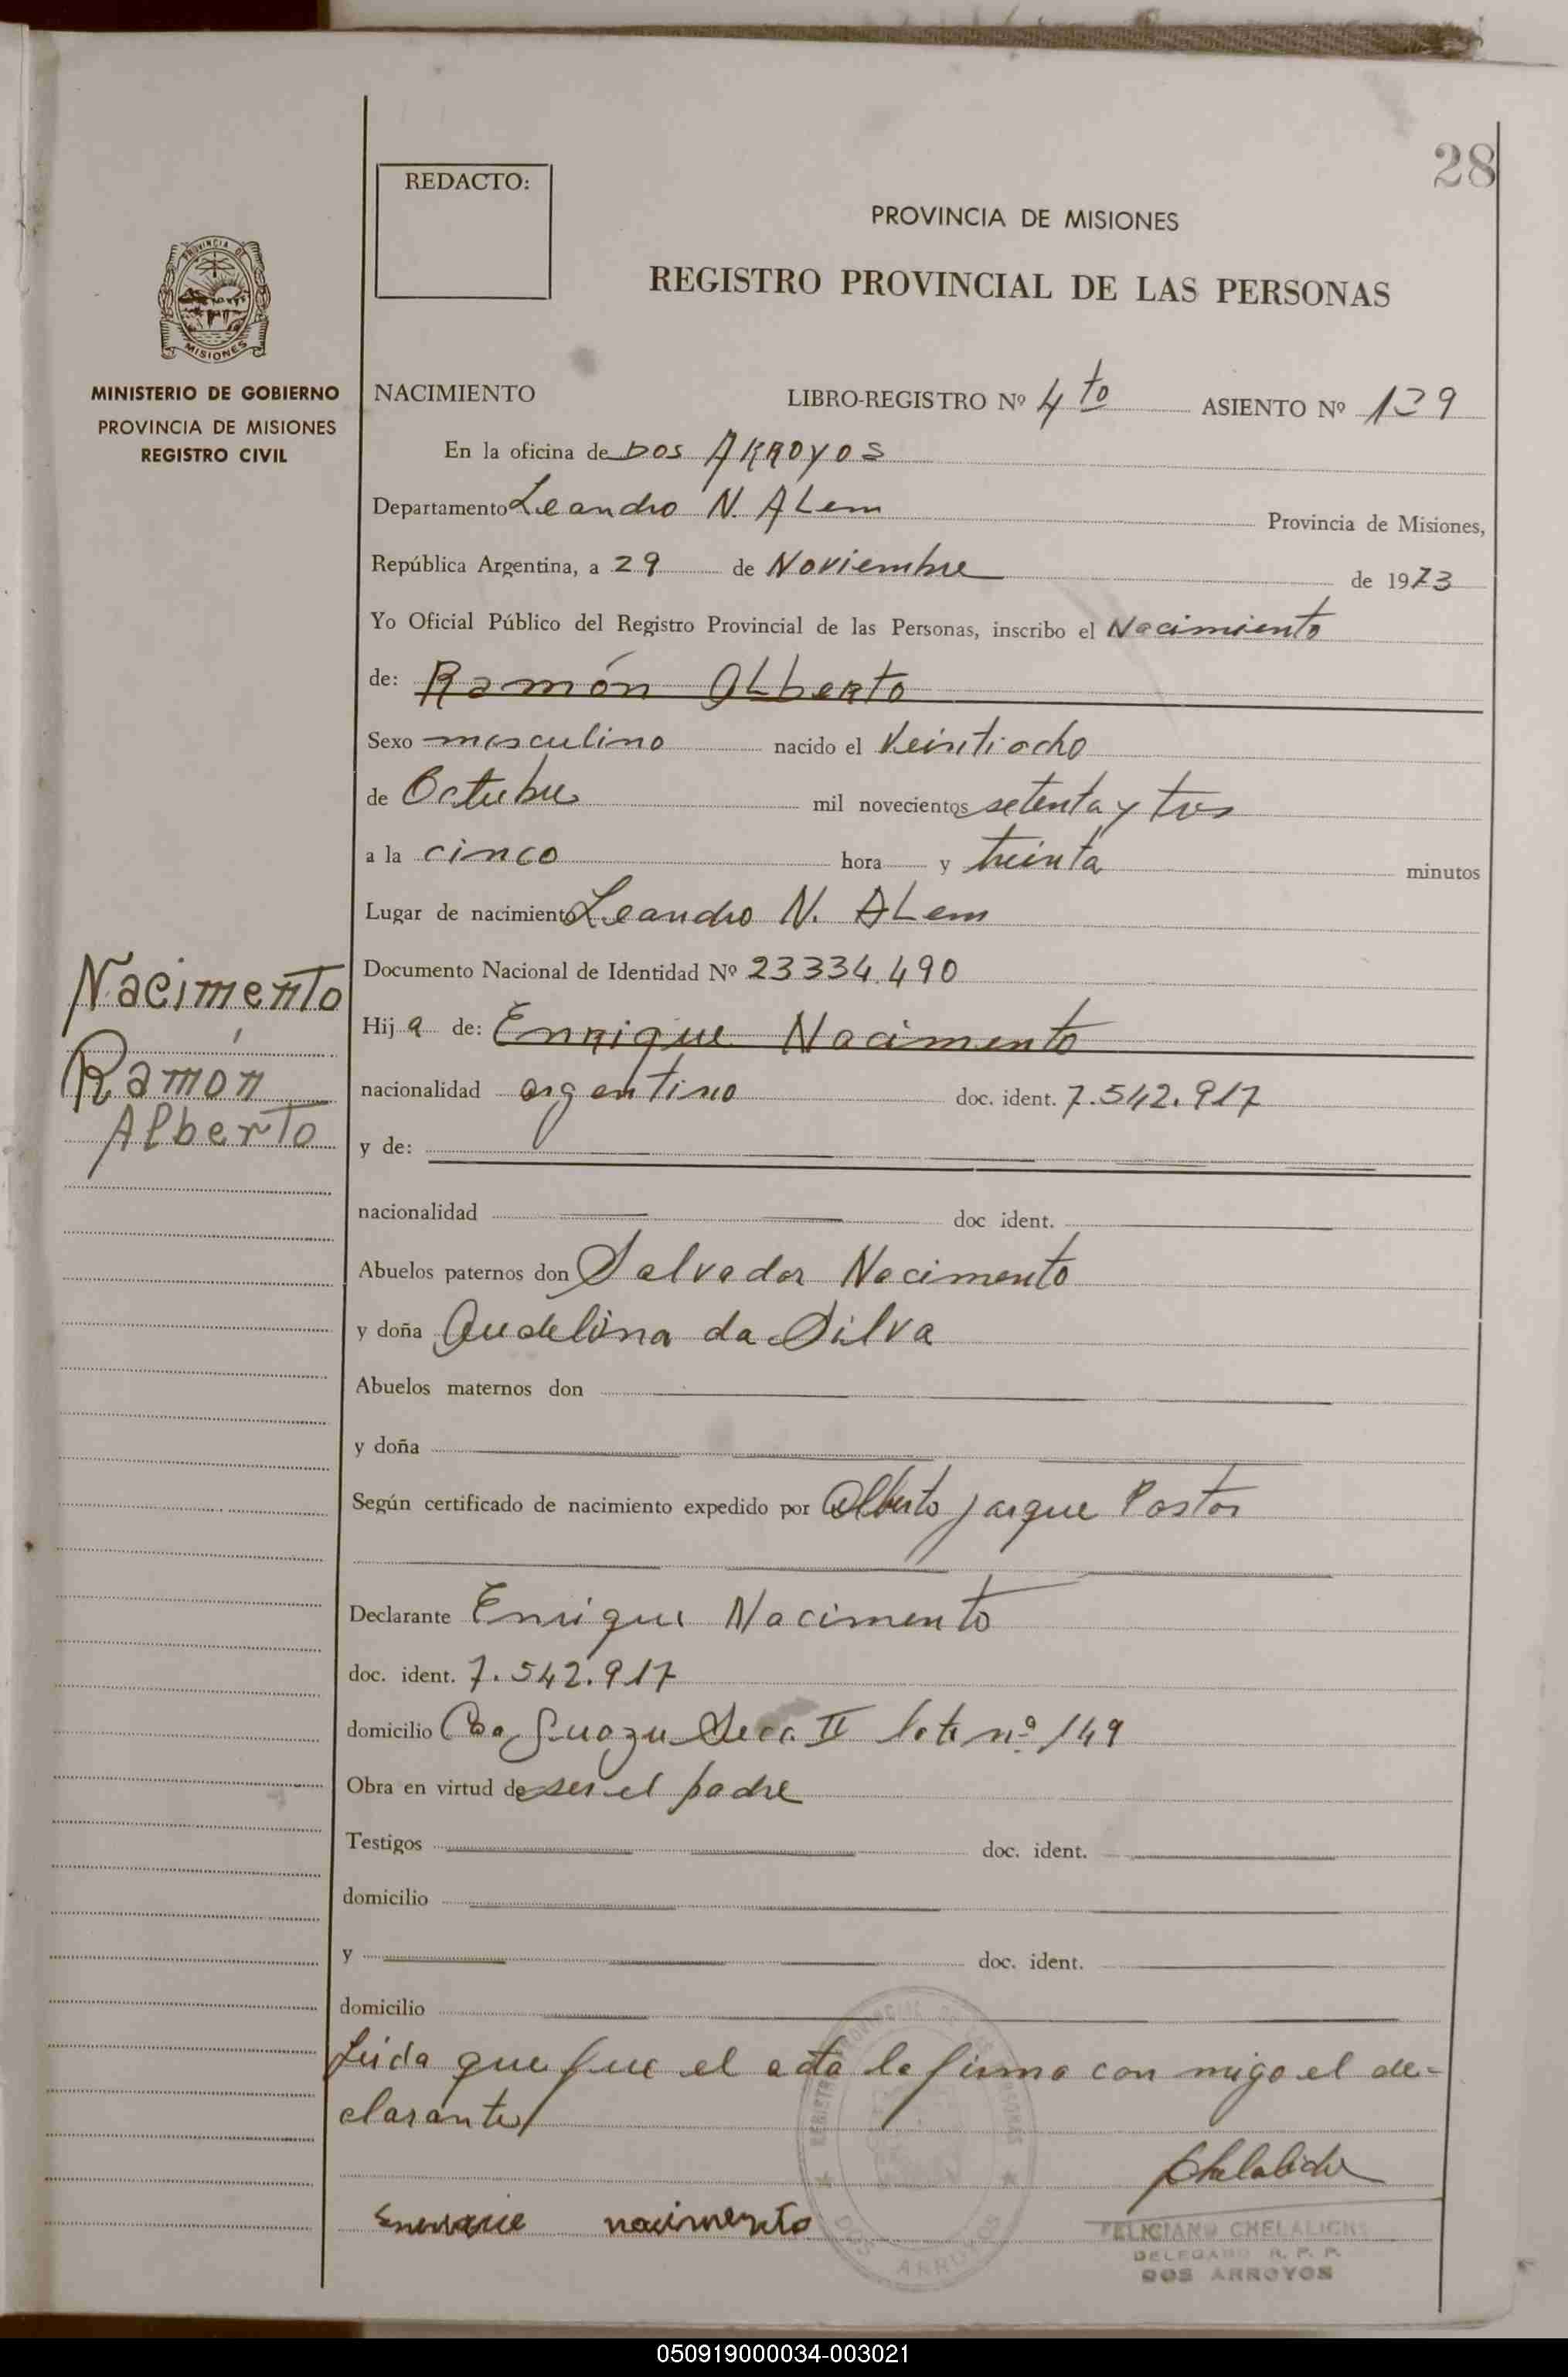 28
REDACTO:
PROVINCIA DE MISIONES
REGISTRO PROVINCIAL DE LAS PERSONAS
PROVINCIA DE
MISIONES
MINISTERIO DE GOBIERNO
PROVINCIA DE MISIONES
REGISTRO CIVIL
NACIMIENTO LIBRO-REGISTRO Nº 4to ASIENTO Nº 139
En la oficina de DOS ARROYOS
Departamento Leandro N. ALem Provincia de Misiones,
República Argentina, a 29 de Noviembre de 1973
Yo Oficial Público del Registro Provincial de las Personas, inscribo el Nacimiento
de: Ramón Alberto
Sexo masculino nacido el Veintiocho
de Octubre mil novecientos setenta y tres
a la cinco hora y treinta minutos
Lugar de nacimiento Leandro N. ALem
Documento Nacional de Identidad Nº 23334.490
Nacimento
Ramón
Alberto
Hij o de: Enrique Nacimento
nacionalidad argentino doc. ident. 7.542.917
y de:
nacionalidad doc ident.
Abuelos paternos don Salvador Nacimento
y doña da Silva
Abuelos maternos don
y doña
Según certificado de nacimiento expedido por Alberto Jarque Pastor
Declarante Enrique Nacimento
doc. ident. 7.542.917
domicilio Caa Guazu Secc. II lote nº 149
Obra en virtud de ser el padre
Testigos doc. ident.
domicilio
y doc. ident.
domicilio
Leida que fue el acta la firma con migo el de=
clarante
REGISTRO PROVINCIAL DE LAS PERSONAS
DOS ARROYOS
nacimento
FELICIANO
DELEGADO R. P. P.
DOS ARROYOS
050919000034-003021